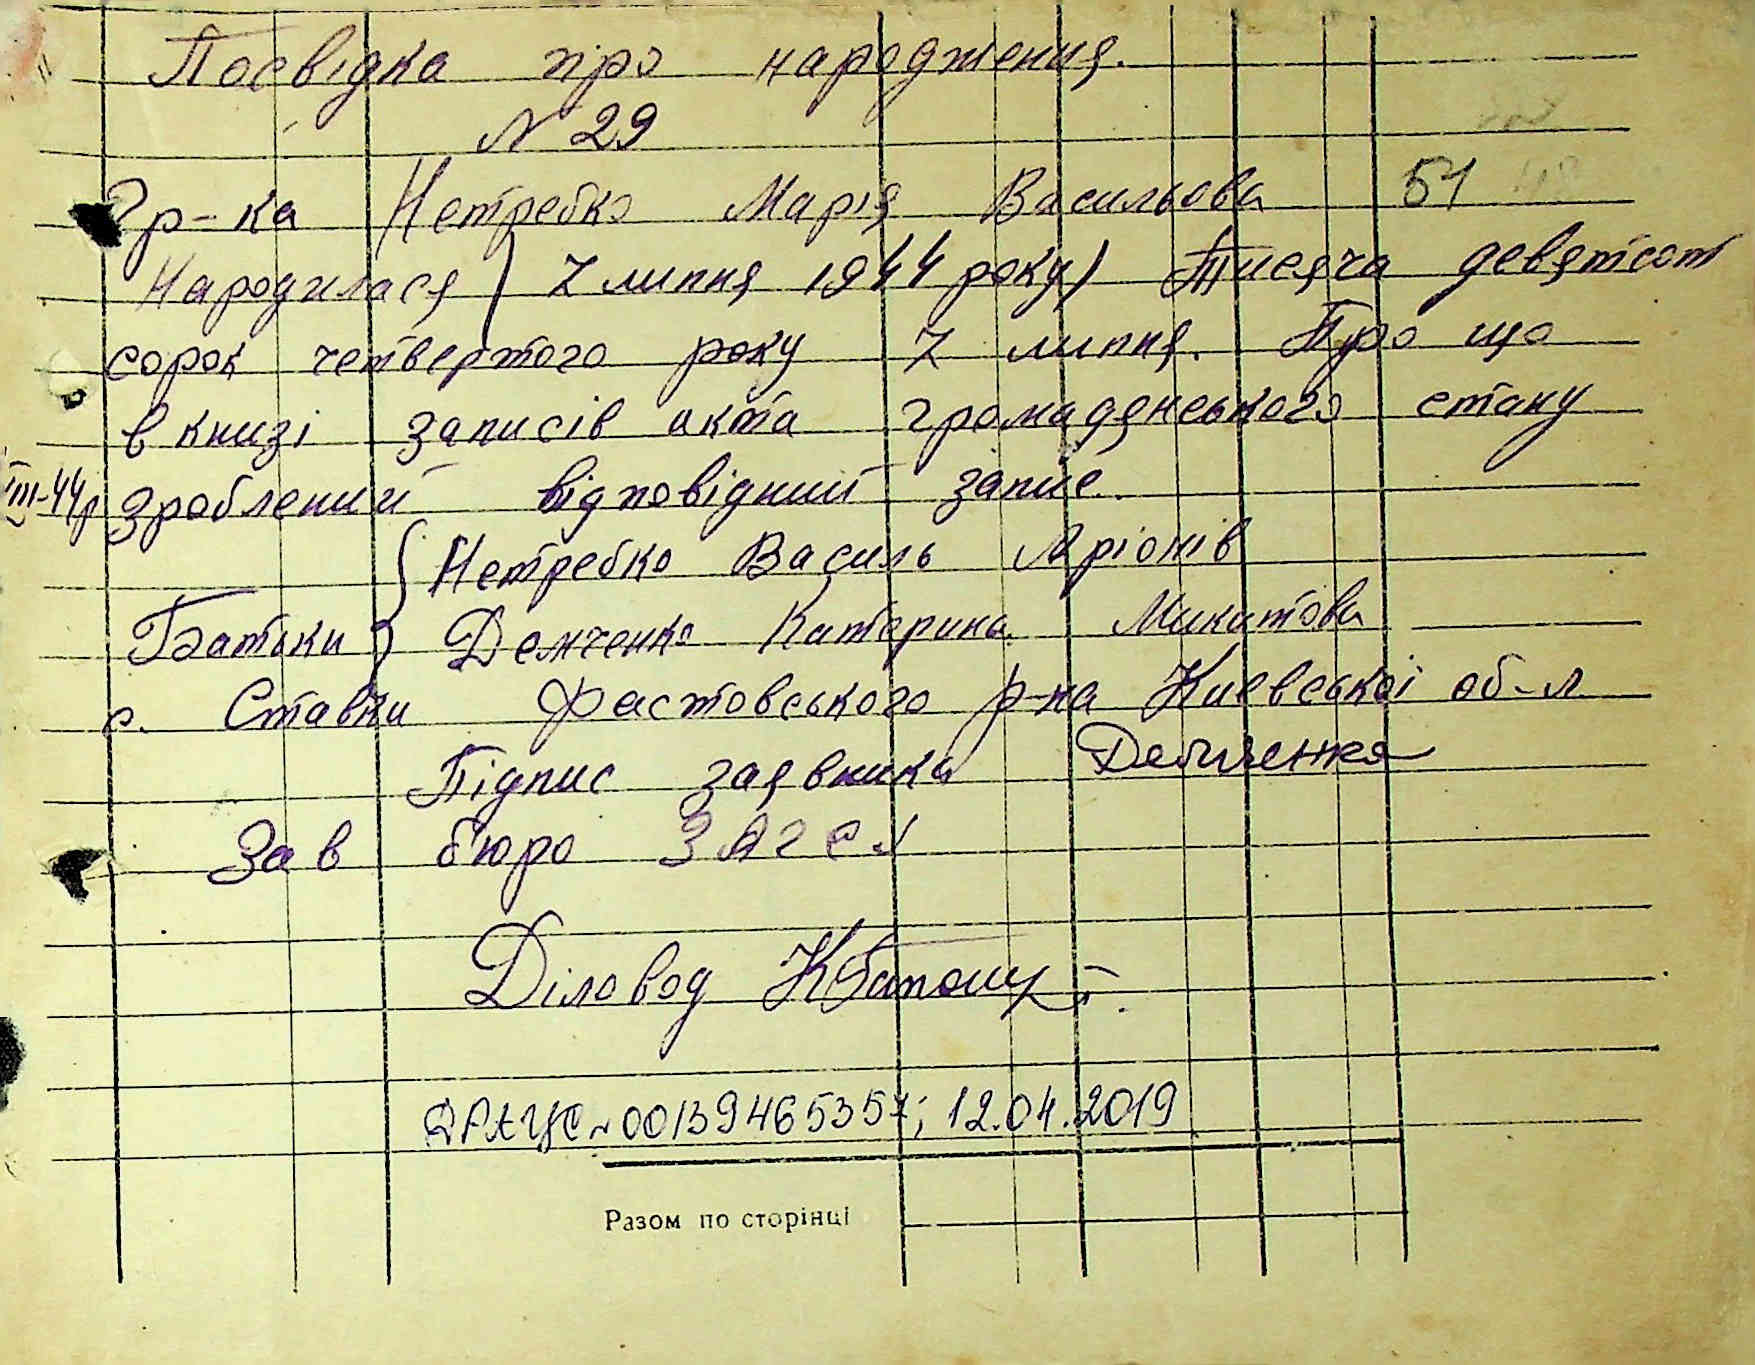 Посвідка про народження.
N 29
Гр-ка Нетребко Марія Васильова 51
Народилася (7 липня 1944 року) Тисяча девятсот
сорок четвертого року 7 липня. Про що
в книзі записів акта громадянського стану
III-44р зроблений відповідний запис.
Нетребко Василь Яріонів
Батьки Демченко Катерина Микитова
с. Ставки Фастовського р-на Київської об-л
Підпис заявника Демченко
Зав бюро ЗАГСу
Діловод
ДРАЦС N 00139465357; 12.04.2019
Разом по сторінці